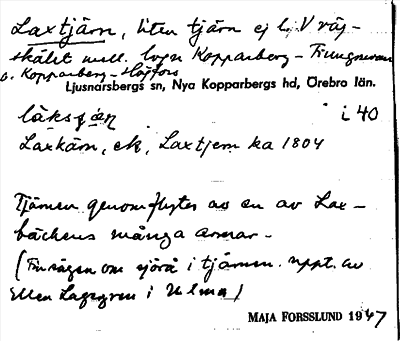 Laxtjärn, liten tjärn ej l. V väg-
skälet mell. lvgn Kopparberg -
o. Kopparberg - Högfors
Ljusnarsbergs sn, Nya Kopparbergs hd, Örebro län.
i 40
Laxkärn, ek, Laxtjern ka 1804
Tjärnen genomflytes av en av Lax-
bäckens många armar.
(Fin sägen om sjörå i tjärnen. uppt. av
Ellen Lagergren i Ulma)
MAJA FORSSLUND 1947